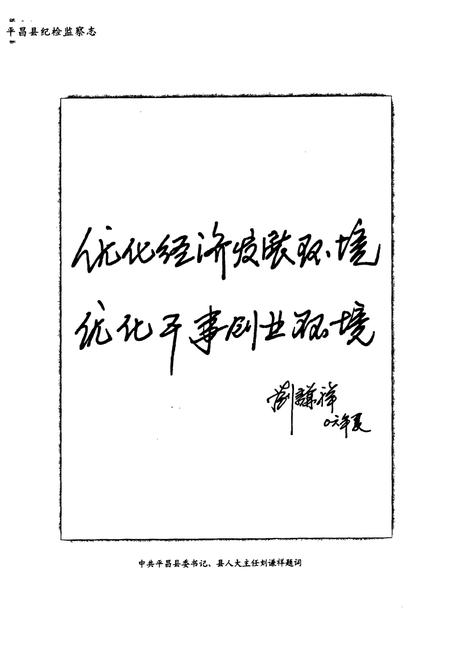 平昌县纪检监察志
优化经济发展环境
优化干事创业环境
刘谦祥
〇六年夏
中共平昌县委书记、县人大主任刘谦祥题词